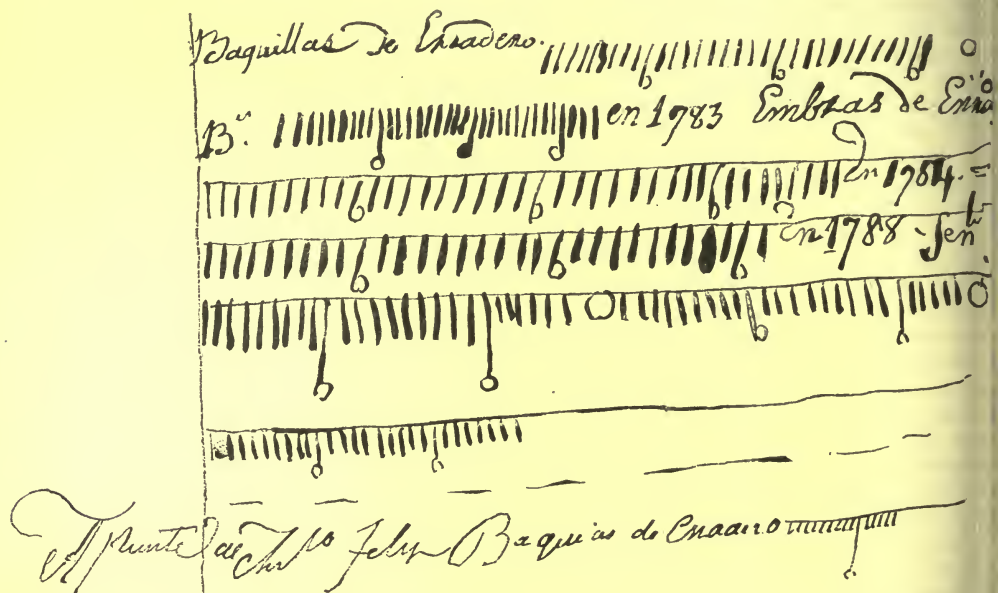 Baquillas de Enradero.
Bas. en 1783 Embras de Enro.
en 1784. =
en 1788 - Senbr.
Apunte de Felip Baquias de Enaaro